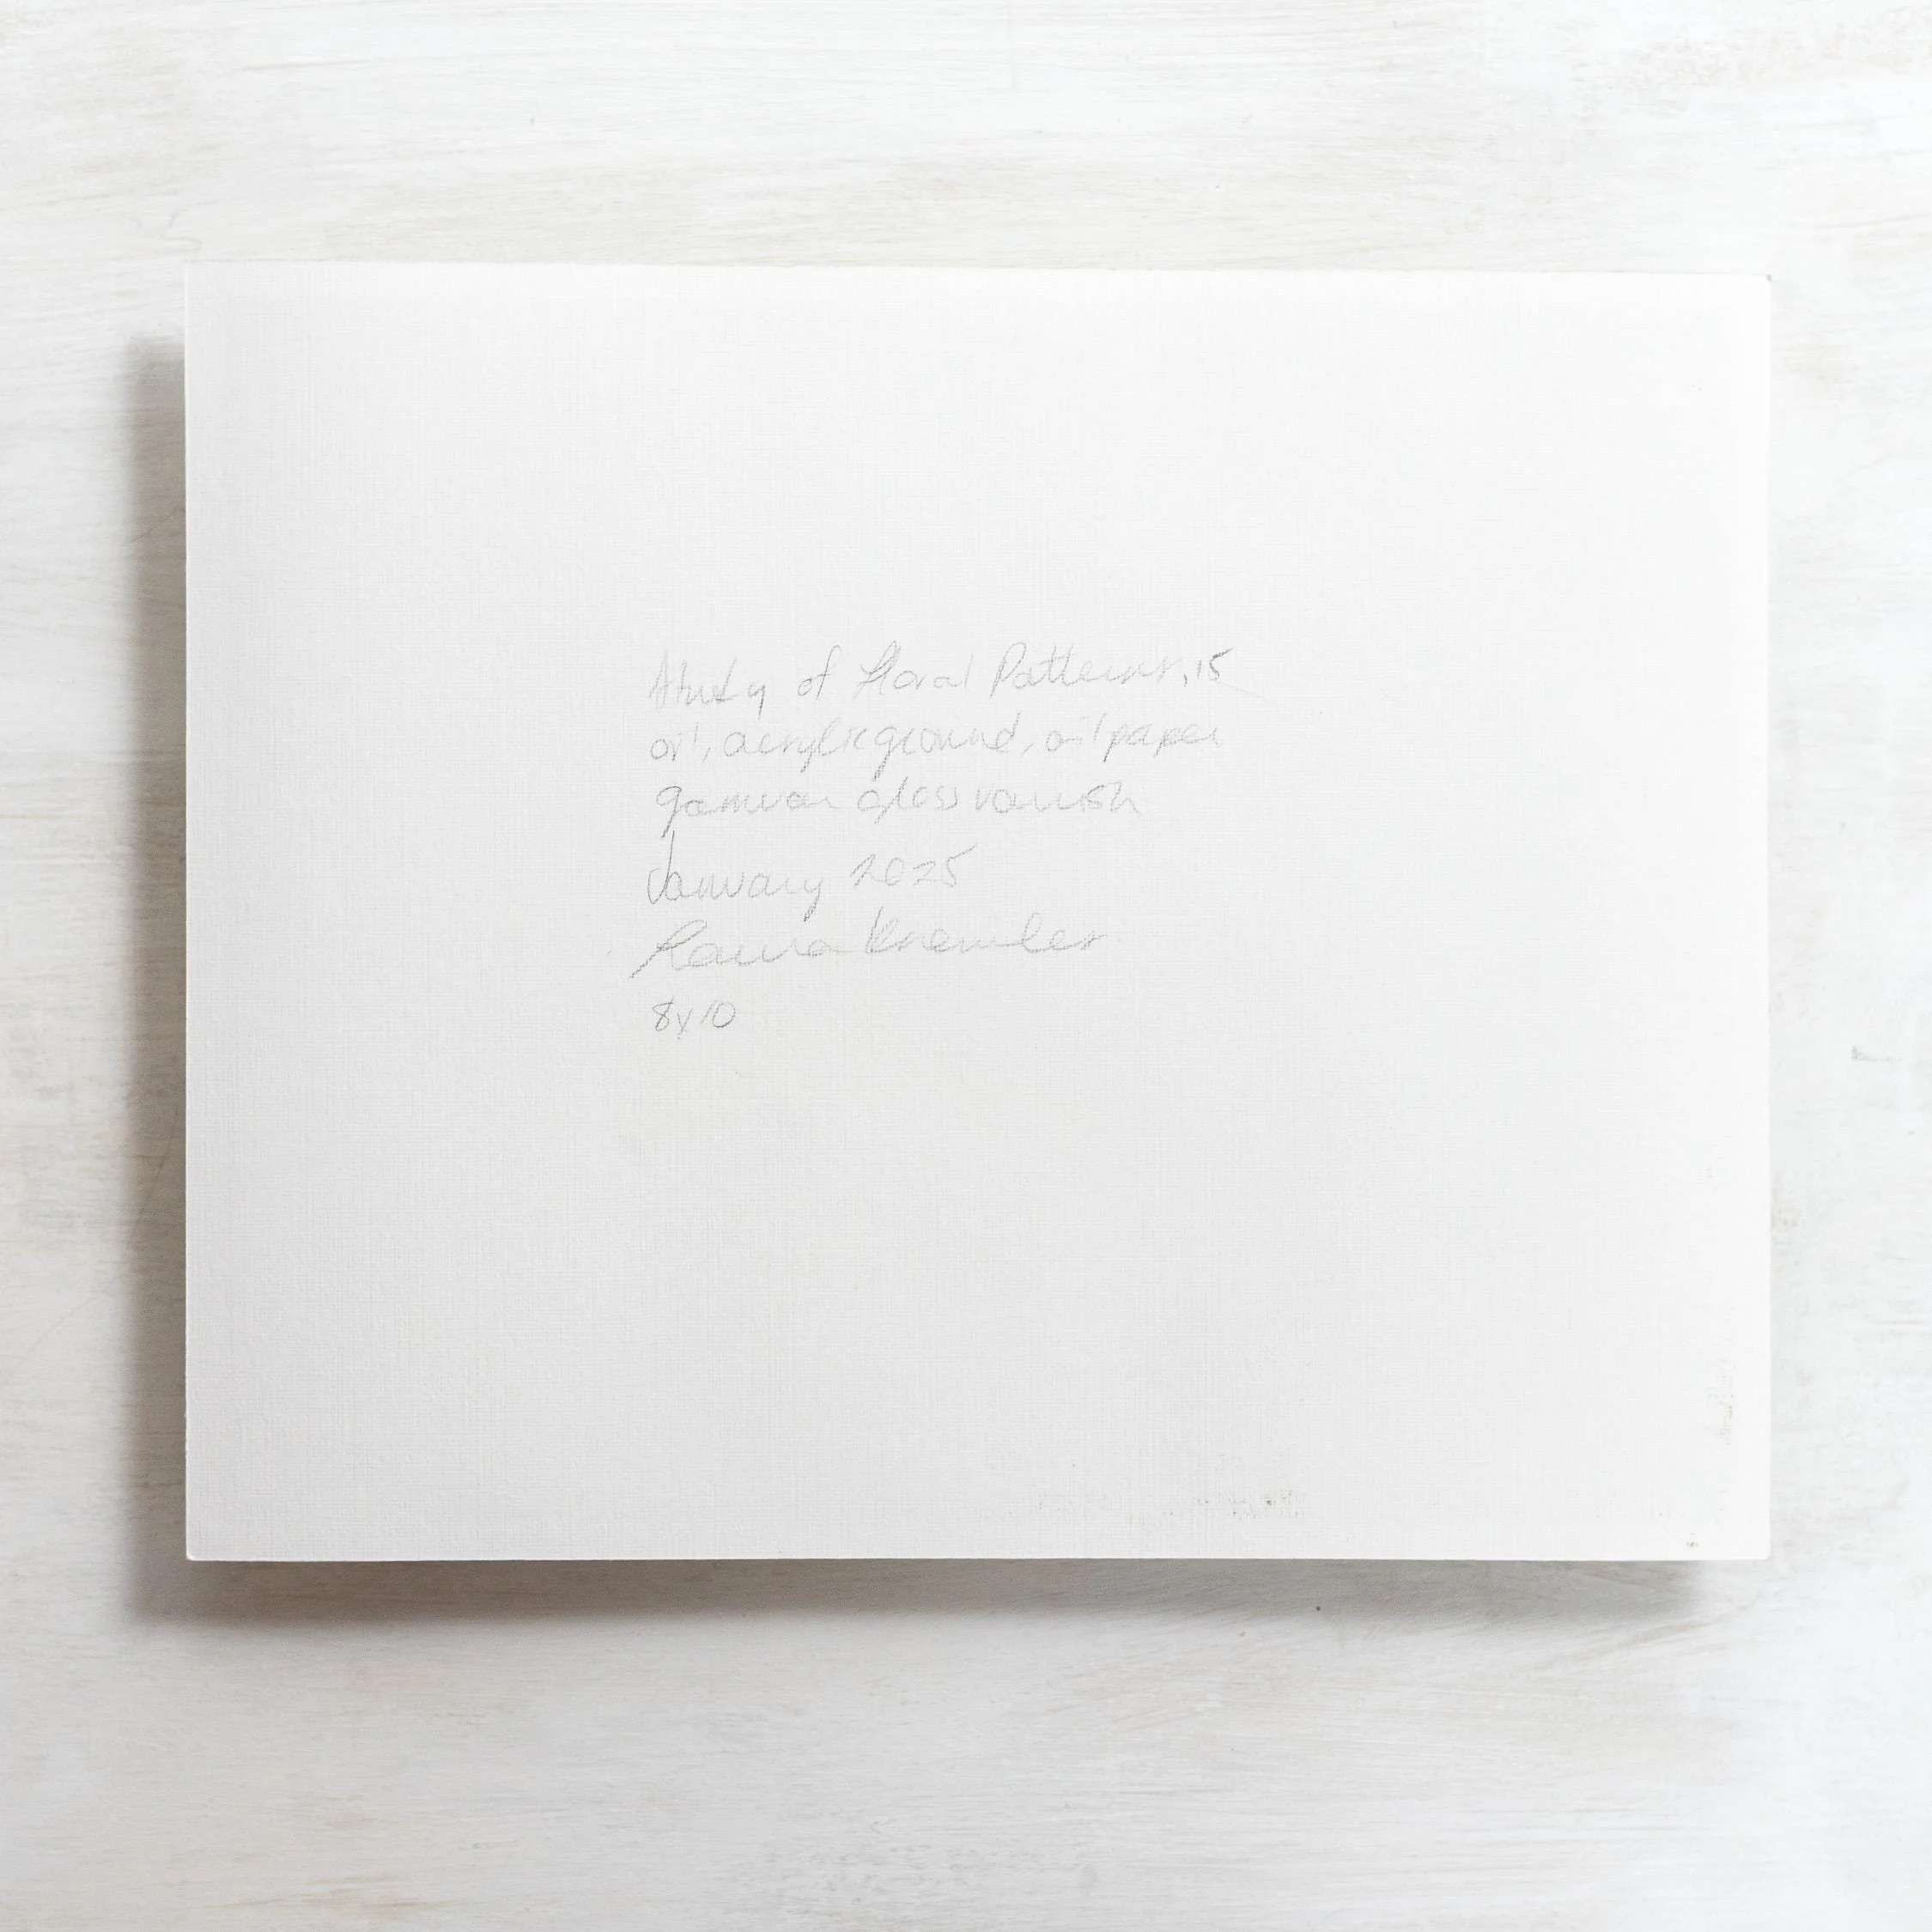 Study of Floral Patterns, 15
oil, acrylic ground, oil paper
gamvar gloss varnish
January 2025
8x10